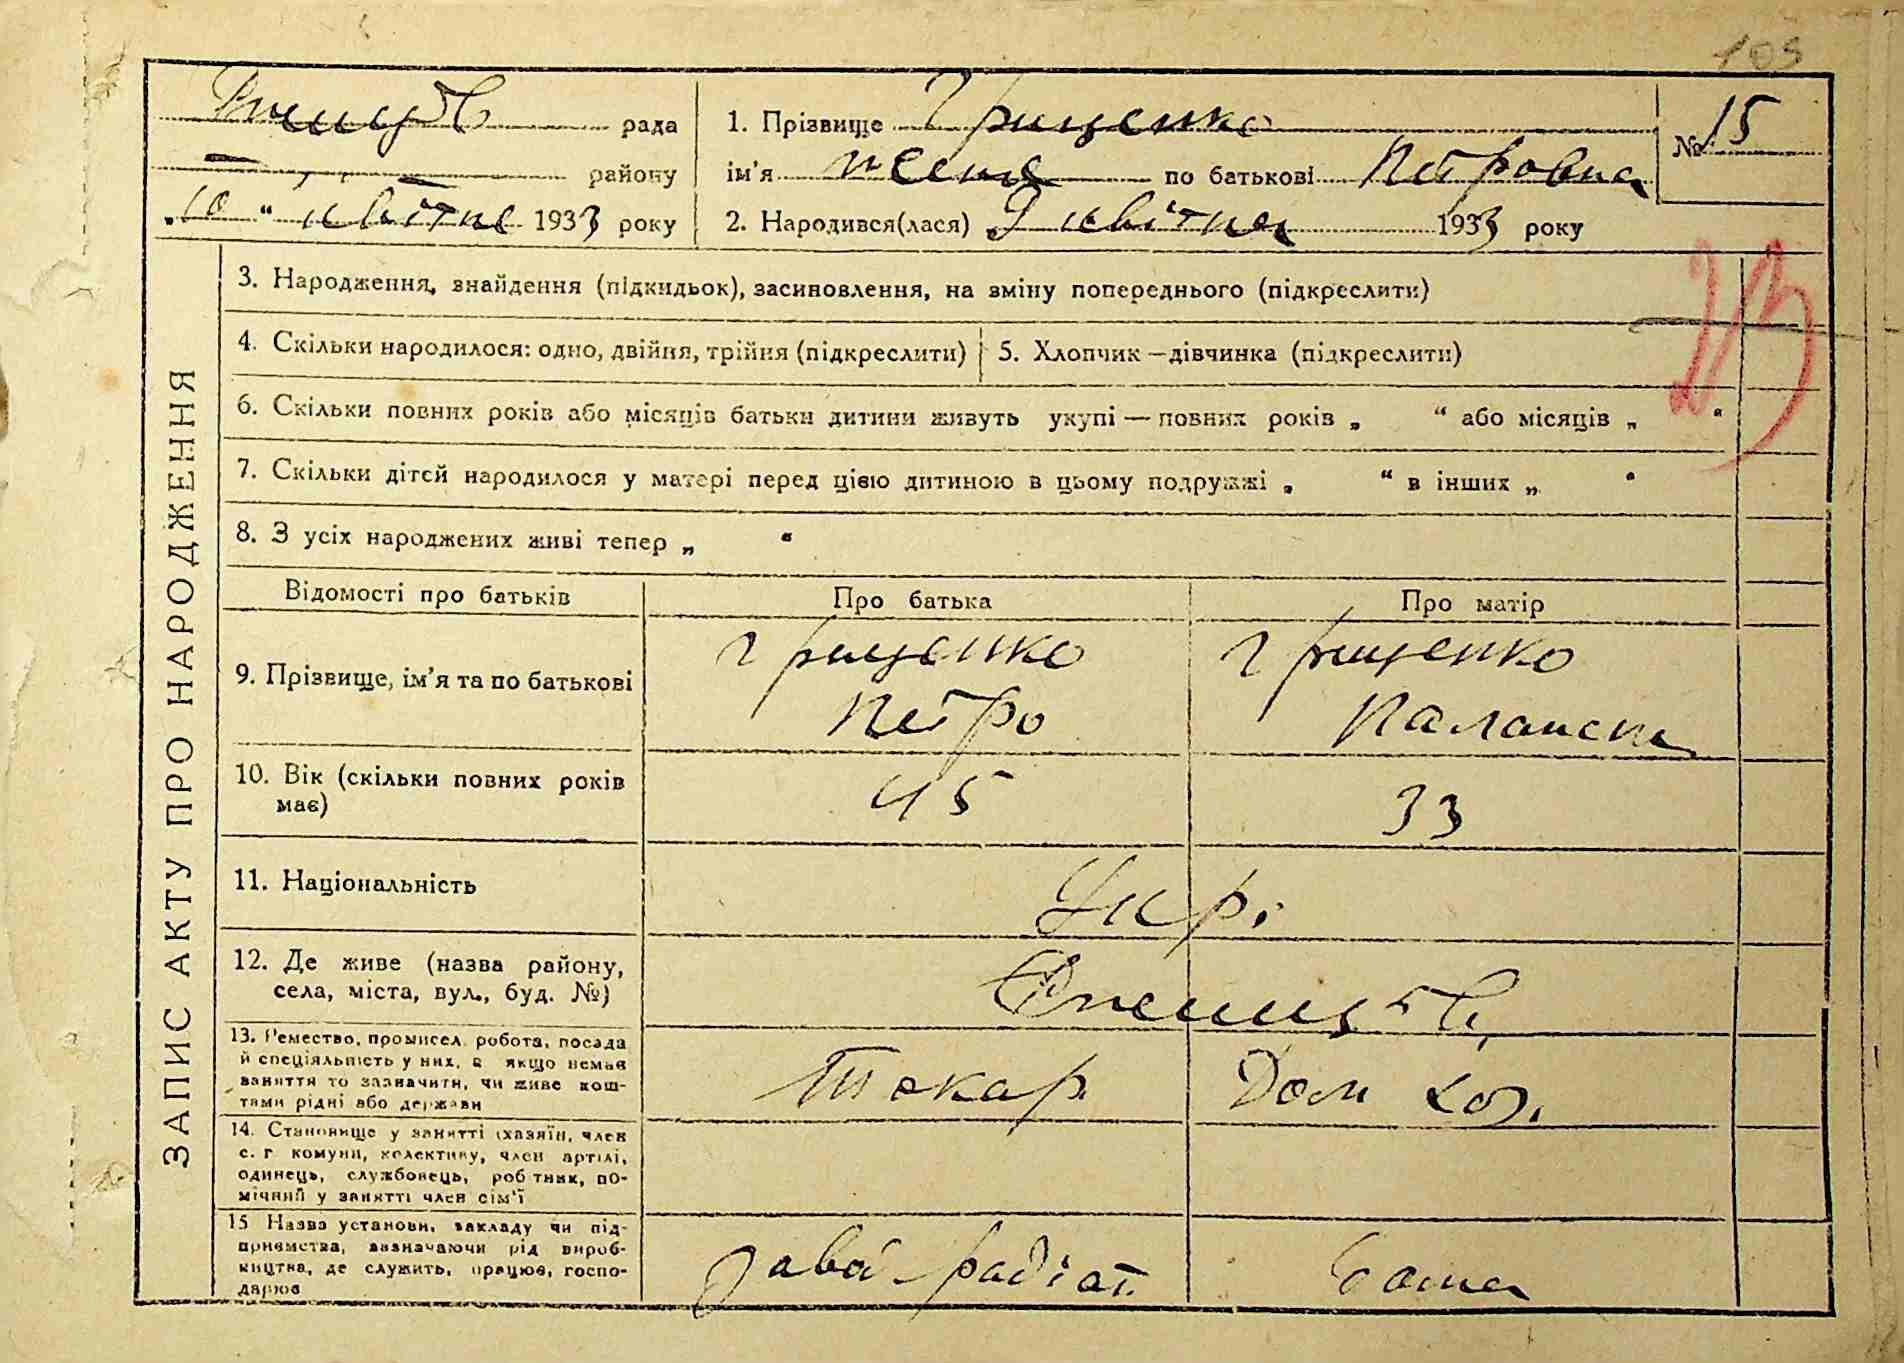 105
рада
1. Прізвище Грищенко
№ 15
району
ім'я Женя по батькові Петровна
„10“ квітня 1933 року
2. Народився(лася) 9 квітня 1933 року
213
ЗАПИС АКТУ ПРО НАРОДЖЕННЯ
3. Народження, знайдення (підкидьок), засиновлення, на зміну попереднього (підкреслити)
4. Скільки народилося: одно, двійня, трійня (підкреслити)
5. Хлопчик — дівчинка (підкреслити)
6. Скільки повних років або місяців батьки дитини живуть укупі — повних років „ “ або місяців „ “
7. Скільки дітей народилося у матері перед цією дитиною в цьому подружжі „ “ в інших „ “
8. З усіх народжених живі тепер „ “
Відомості про батьків
Про батька
Про матір
9. Прізвище, ім'я та по батькові
Грищенко
Петро
Грищенко
10. Вік (скільки повних років
має)
45
33
11. Національність
Укр.
12. Де живе (назва району,
села, міста, вул., буд. №)
13. Ремество, промисел, робота, посада
й спеціяльність у них, а якщо немає
заняття то зазначити, чи живе кош-
тами рідні або держави
Токар
Дом хоз.
14. Становище у занятті (хазяїн, член
с. г. комуни, колективу, член артілі,
одинець, службовець, робітник, по-
мічний у занятті член сім'ї
15 Назва установи, закладу чи під-
приємства, зазначаючи рід вироб-
ництва, де служить, працює, госпо-
дарює
завод
дома